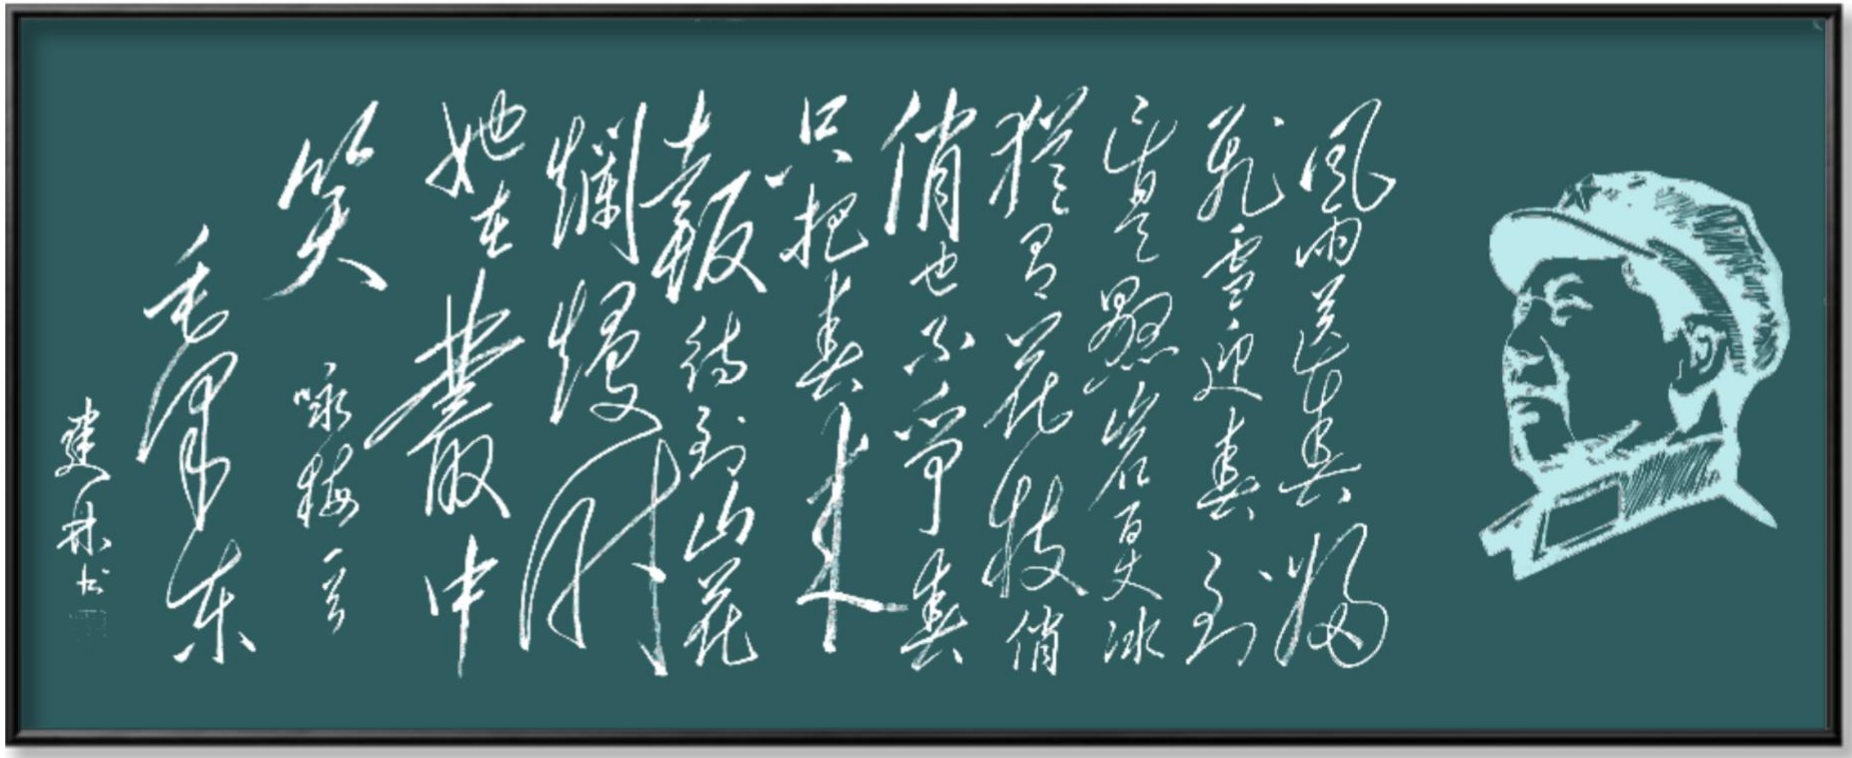 風雨送春歸
飛雪迎春到
已是懸崖百丈冰
猶有花枝俏
俏也不爭春
只把春来
報待到山花
爛漫时
她在叢中
笑 咏梅一首
毛泽东
建林书